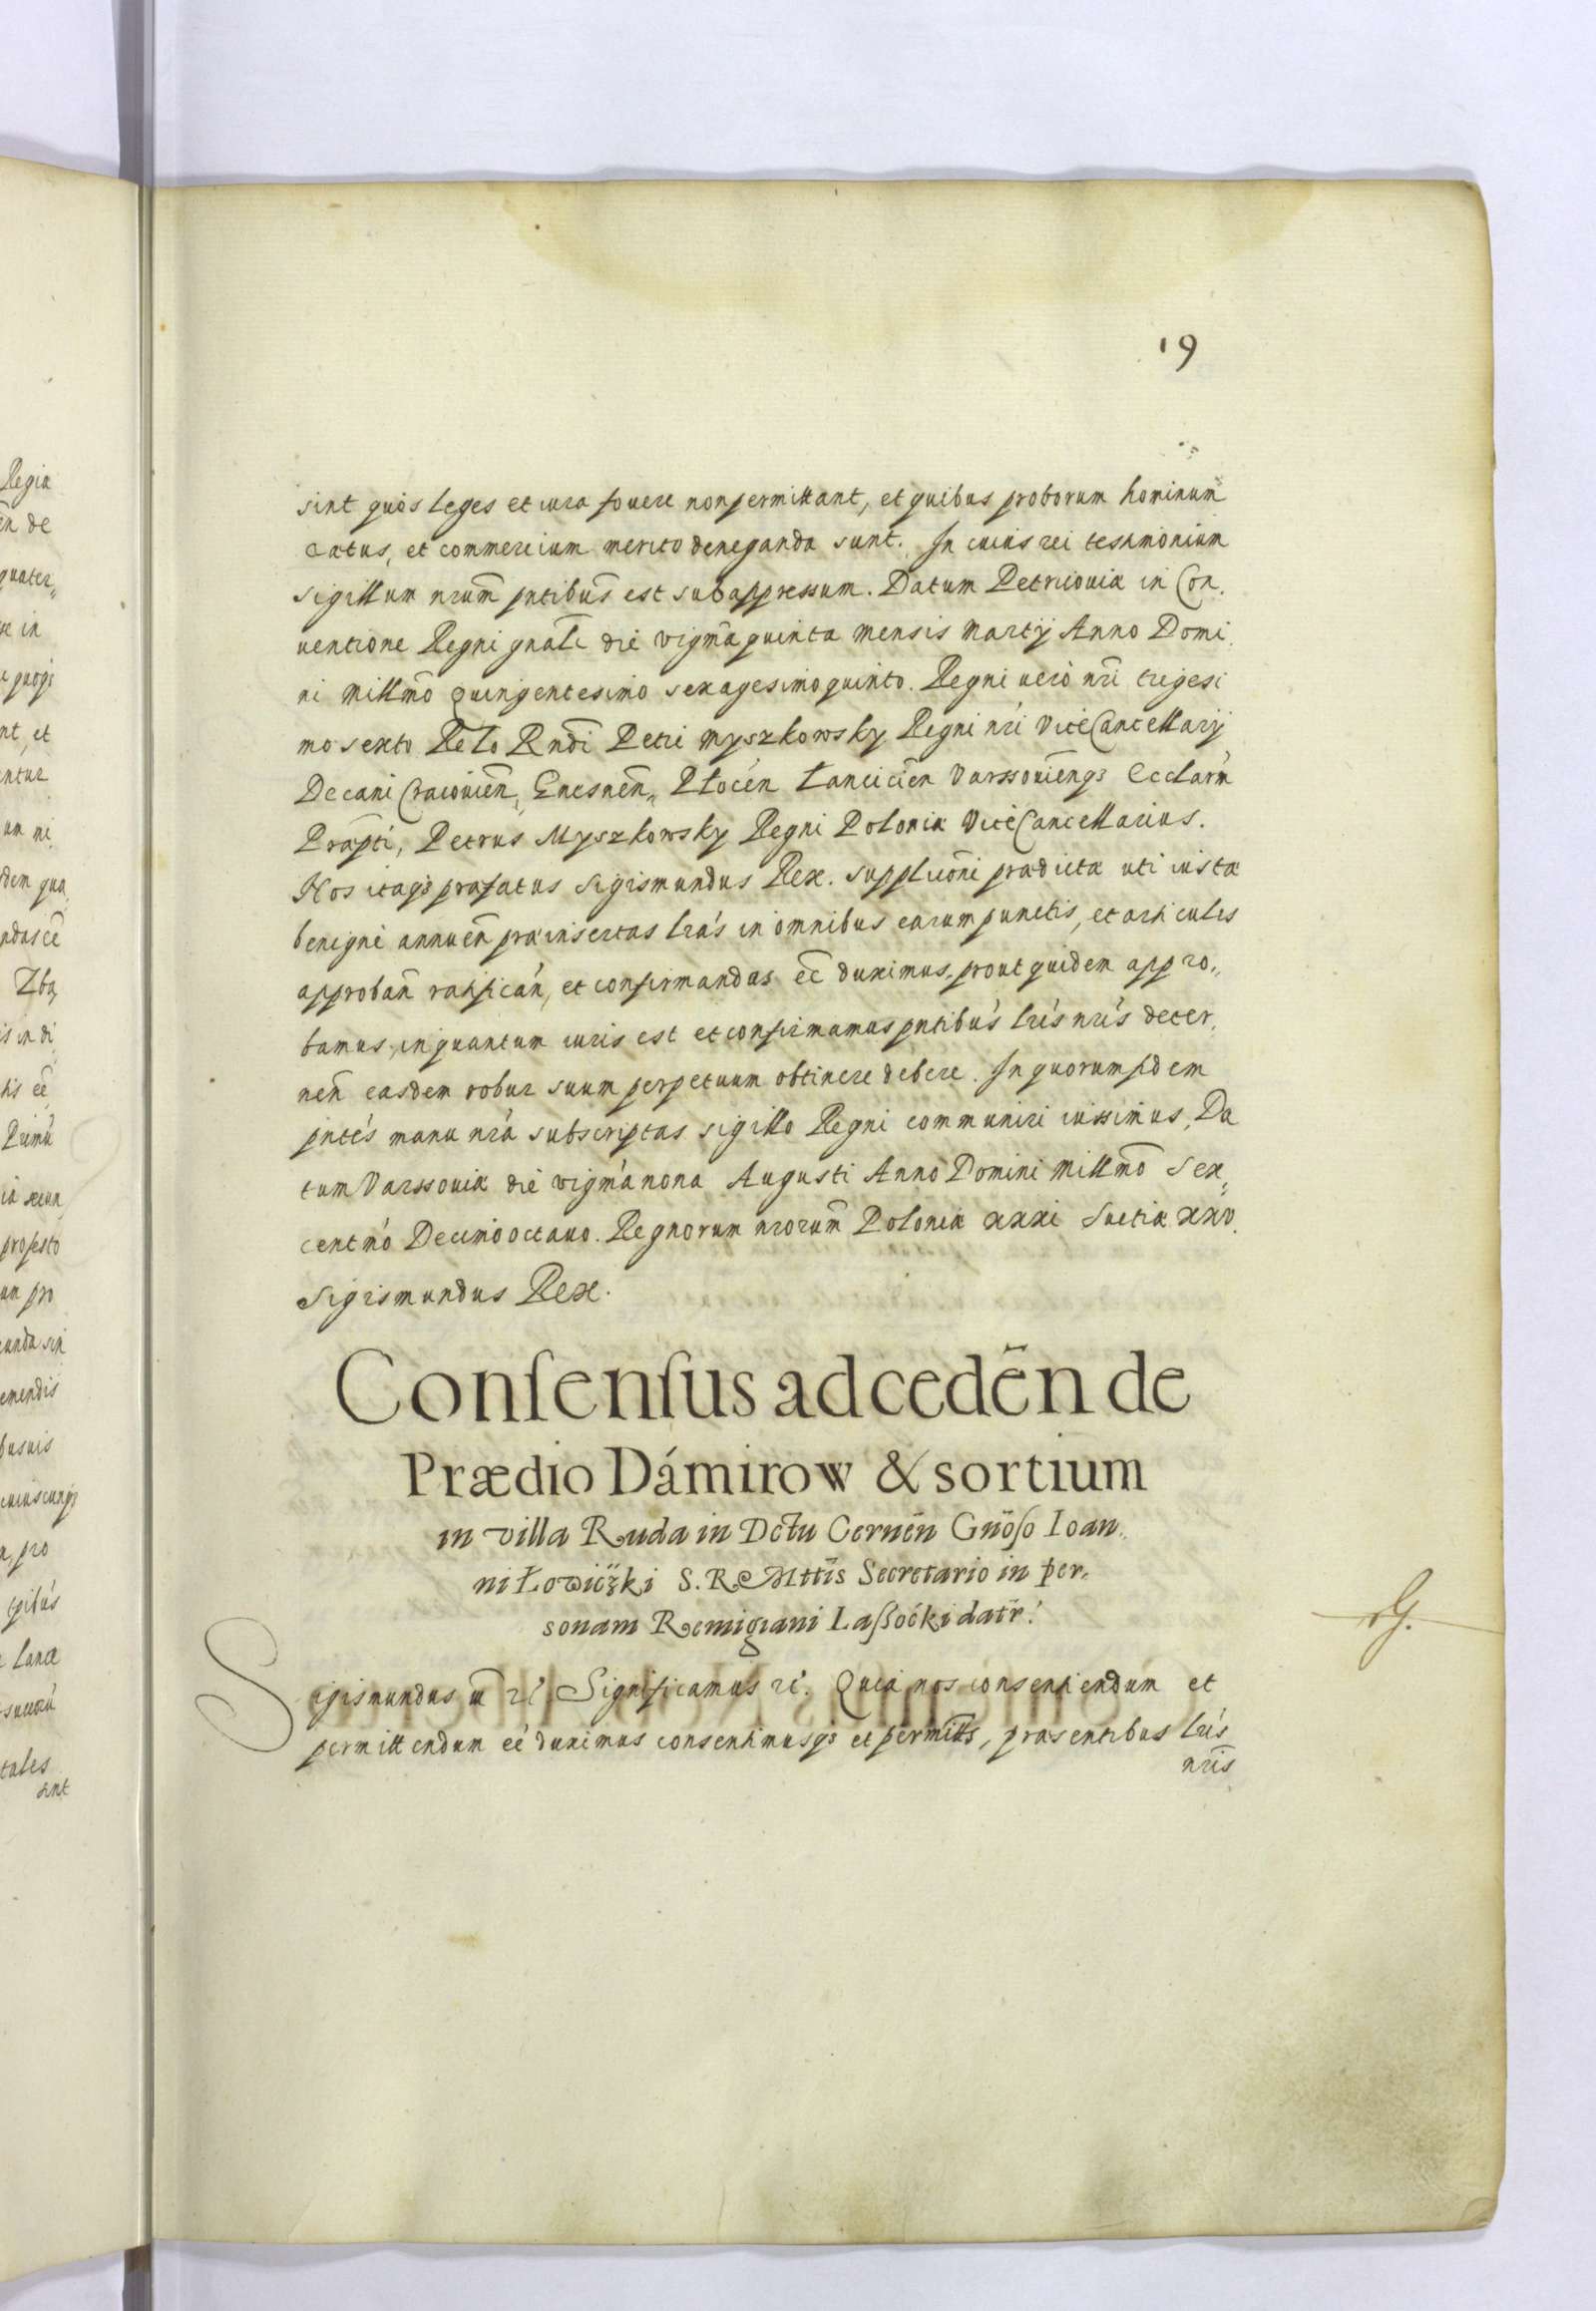 19
sint quos leges et iura fouere non permittant, et quibus proborum hominum
cætus, et commercium merito deneganda sunt. In cuius rei testimonium
sigillum nrum̄ pntibus̄ est subappressum. Datum Petricouiæ in Con,
uentione Regni gnāli die vigm̄a quinta mensis Martij Anno Domi,
ni Millmō Quingentesimo sexagesimo quinto. Regni uerò nrī trigesi
mo sexto Relō Rndī Petri Myszkowsky Regni nrī ViceCancellarij
Decani Cracouien̄, Gnesnen̄, Płocen̄ Łancicien̄ Varssouien̄qȝ Ecclarū
Præpti, Petrus Myszkowsky Regni Poloniæ ViceCancellarius.
Nos itaqȝ præfatus Sigismundus Rex. supplicōni prædictæ uti iustæ
benignè annuen̄ præinsertas lrās in omnibus earum punctis, et articulis
approban̄ ratifican̄, et confirmandas eē duximus, prout quidem appro„
bamus, inquantum iuris est et confirmamus pntibūs lrīs nrīs decer,
nen̄ easdem robur suum perpetuum obtinere debere. In quorum fidem
pntēs manu nrā subscriptas sigillo Regni communiri iussimus, Da
tum Varssouiæ die vigm̄a nona Augusti Anno Domini Millmō Sex„
centmō Decimo octauo. Regnorum nrorum̄ Poloniæ xxxi Suetiæ xxv.
Sigismundus Rex.
Conſenſus ad ceden̄ de
Prædio Dámirow & sortium
in villa Ruda in Dctu Cernen̄ Gnōſo Ioan„
ni Łowiczki S. R. Mttis Secretario in per„
sonam Remigiani Laſsocki datr̄.
Sigismundus iiī rc̄. Significamus rc̄. Quia nos consentiendum et
permittendum eē duximus consentimusqȝ et permitts̄, præsentibus lrīs
nrīs